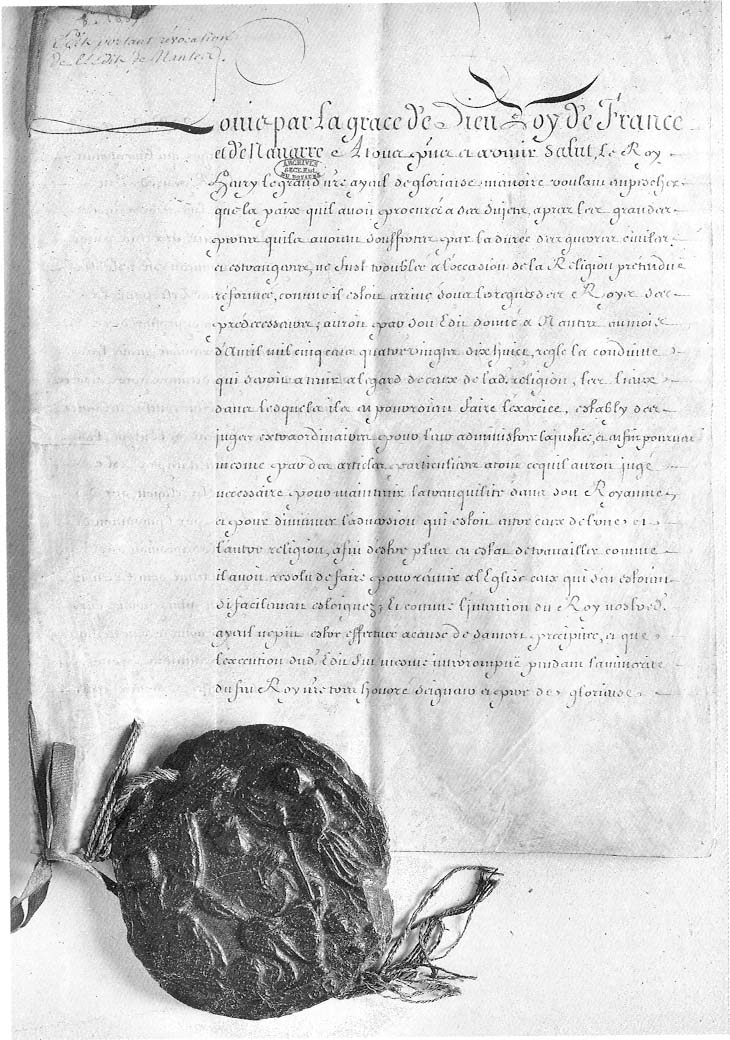 8.bre 1685
Edit portant revocation
de l'Edit de Nantes.
Louis par la grace de Dieu Roy de France
et de Navarre A tous p̃ns et a venir Salut, Le Roy
ARCHIVES
SECT. HIST.
DU ROYAUME
Henry le grand n̄re ayeul de glorieuse memoire voulant empescher
que la paix quil avoit procurée a ses Sujets, apres les grandes
pertes quils avoient souffertes par la durée des guerres civiles
et estrangeres, ne fust troublée a l'occasion de la Religion prétenduë
réformée, comme il estoit arrivé sous les regnes des Roys ses
prédecesseurs; auroit par son Edit donné a Nantes au mois
d'Avril mil cinq cens quatre vingts dix huict, reglé la conduitte
qui devoit a tenir a l'egard de ceux de lad. religion, les lieux
dans lesquels ils en pourroient faire l'exercice, estably des
juges extraordinaires pour leur administrer la justice, et enfin pourveu
mesme par des articles particuliers a tout ce quil auroit jugé
necessaire pour maintenir la tranquilité dans son Royaume,
et pour diminuer l'adversion qui estoit entre ceux de l'une et
l'autre religion, afin d'estre plus en estat de travailler comme
il avoit resolu de faire pour reünir a l'Eglise ceux qui s'en estoient
si facilement esloignez; Et comme l'intention du Roy nostred.
ayeul ne pût estre effectuée a cause de sa mort precipitée, et que
l'execution dud. Edit fut mesme interrompüe pendant la minorité
du feu Roy n̄re tres honoré Seigneur et pere de glorieuse